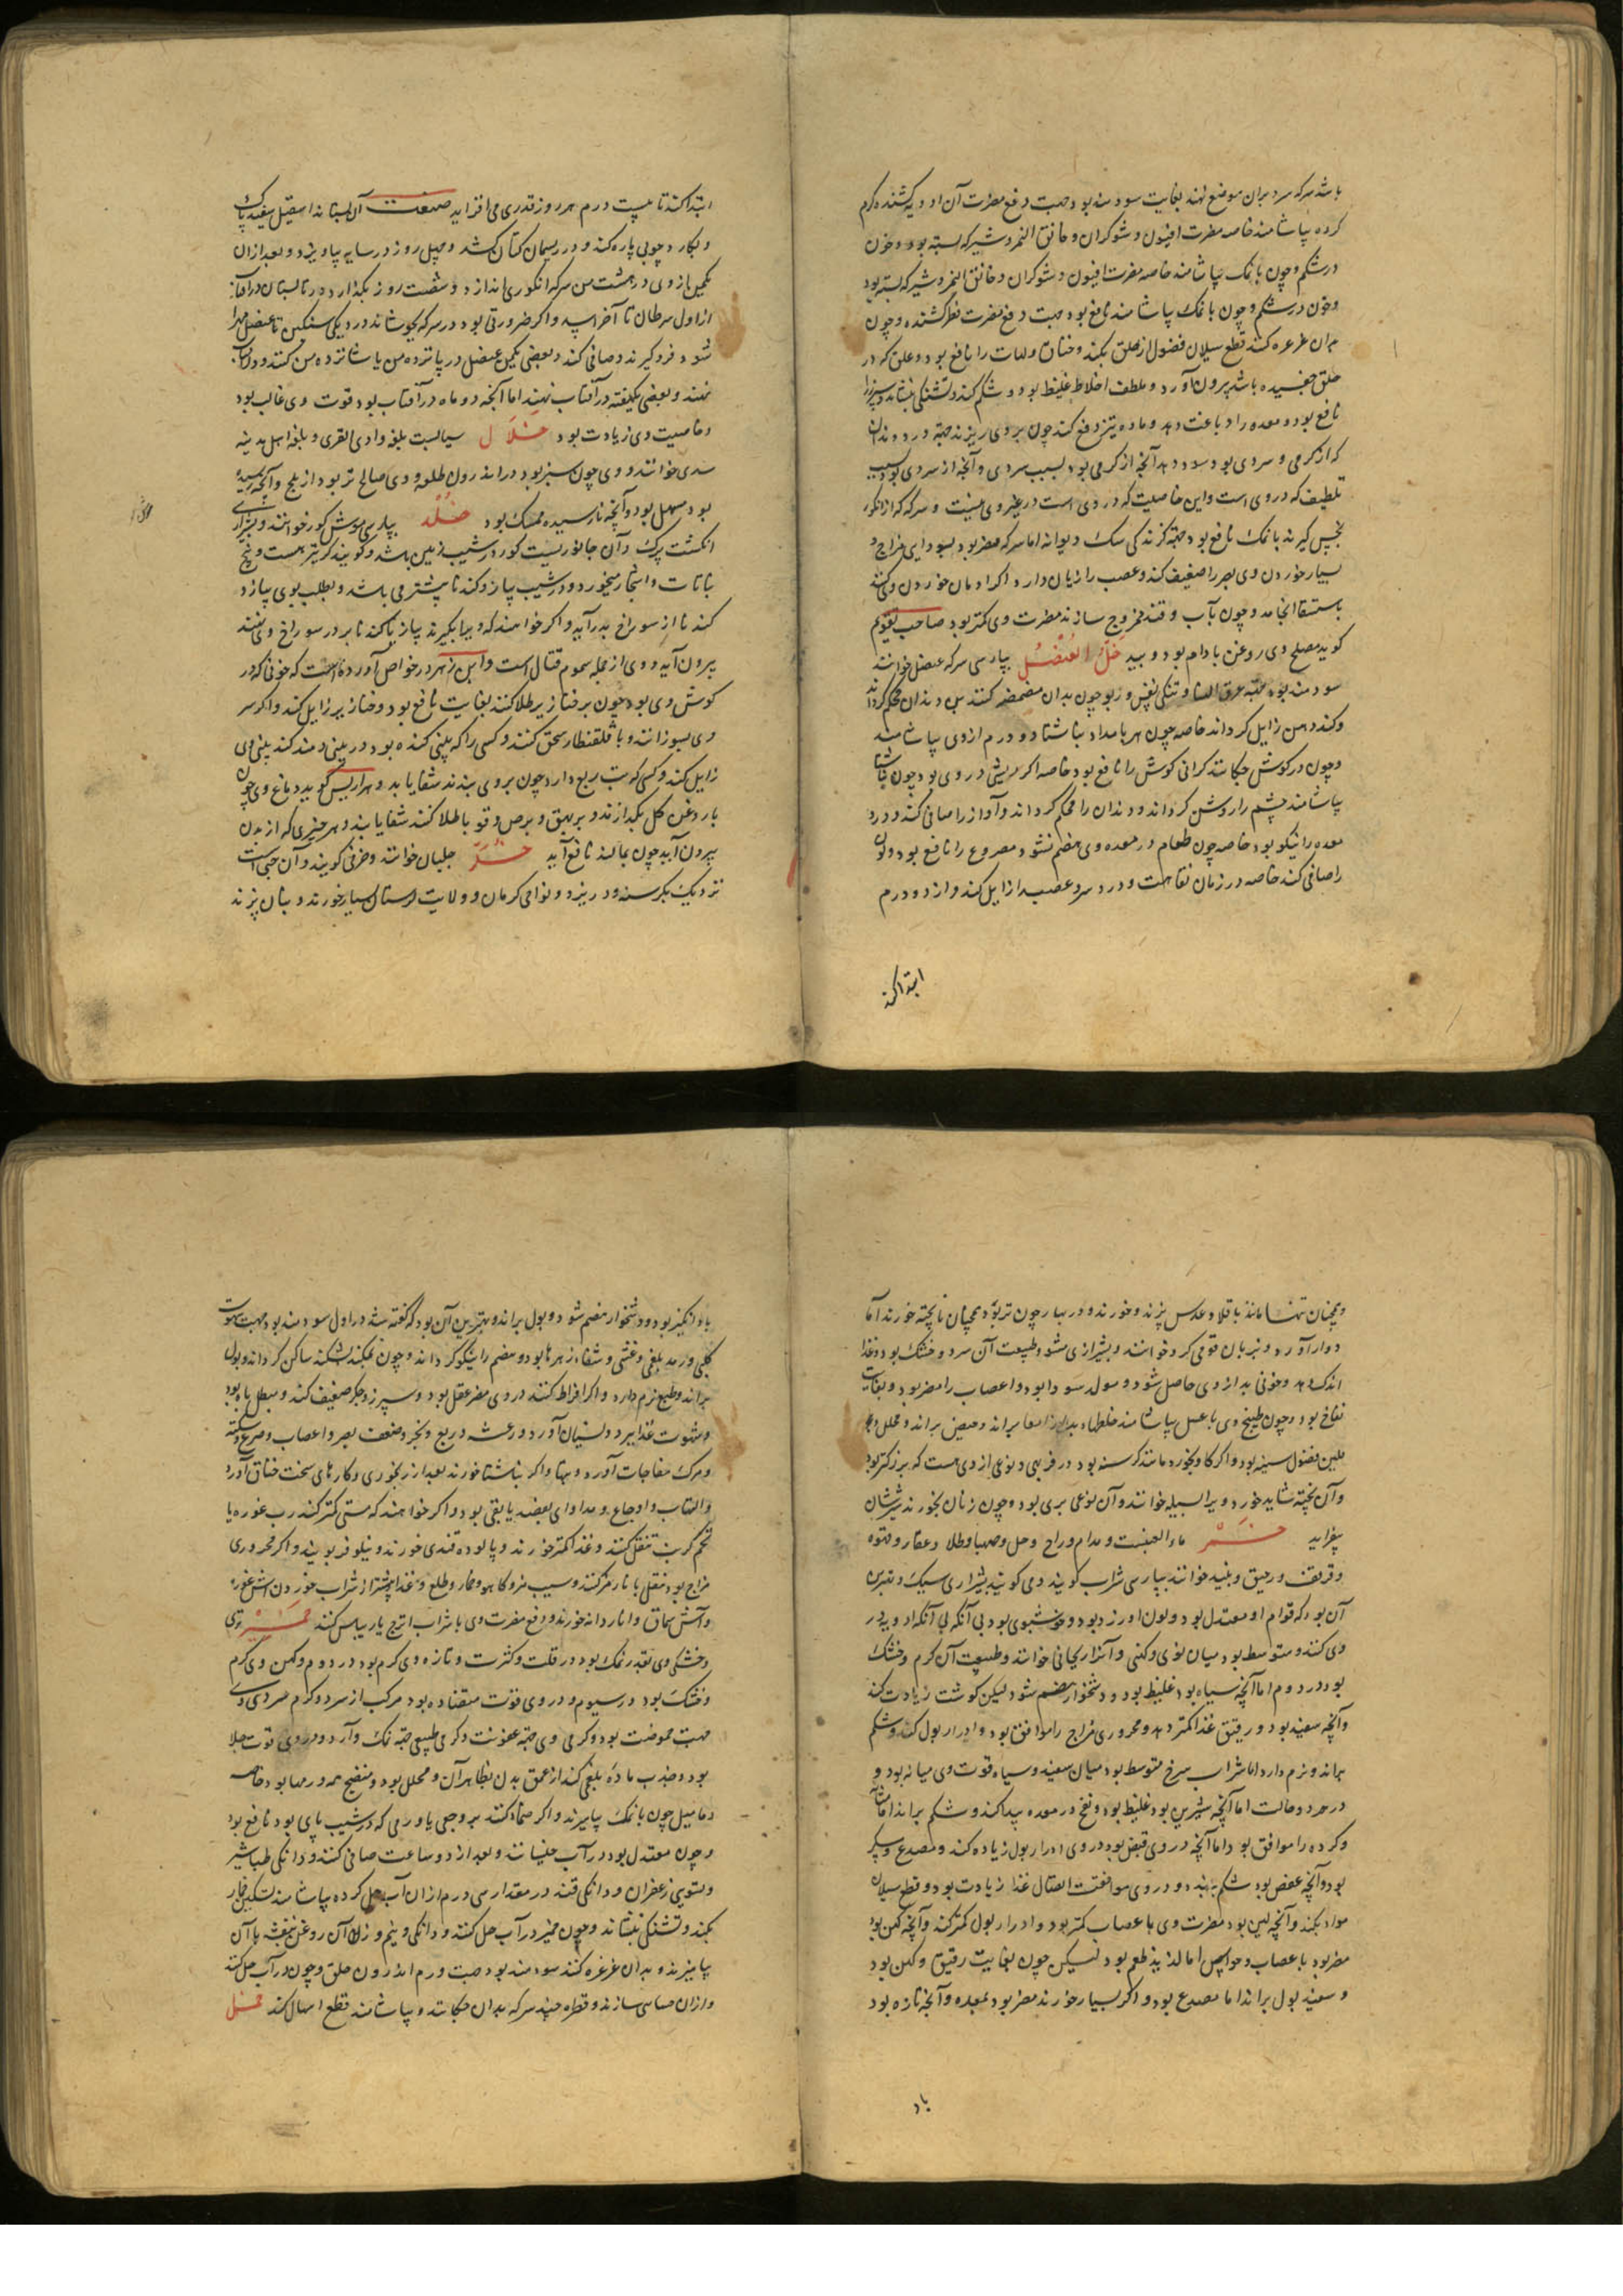 باشد سرکه سرد بران موضع نهند بغایت سودمند بود و جهت دفع مضرت آن ادویه کشنده گرم
کرده بیاشامند خاصه مضرت افیون و شوکران و خانق النمر و شیر که بسته بود و خون
در شکم و چون با نمک بیاشامند خاصه مضرت افیون و شوکران و خانق النمر و شیر که بسته بود
و خون در شکم و چون با نمک بیاشامند نافع بود جهت دفع مضرت فطر کشنده و چون
بدان غرغره کنند قطع سیلان فضول از حلق بکند و خناق و لهات را نافع بود و علق که در
حلق چفسیده باشد بیرون آورد و ملطف اخلاط غلیظ بود و شکم کند و تشنگی بنشاند و سپرز را
نافع بود و معده را دباغت دهد و ماده تیز دفع کند چون بر وی ریزند جهة درد دندان
که از گرمی و سردی بود سود دهد آنچه از گرمی بود بسبب سردی و آنچه از سردی بود بسبب
تلطیف که در وی است و این خاصیت که در وی است در غیر وی نیست و سرکه که از انگور
گیرند با نمک نافع بود جهة گزندگی سک دیوانه اما سرکه مضر بود بسودایی مزاج و
بسیار خوردن وی بصر را ضعیف کند و عصب را زیان دارد اگر ادمان خوردن وی کنند
باستسقا انجامد و چون بآب و قند ممزوج سازند مضرت وی کمتر بود صاحب تقویم
کوید مصلح وی روغن بادام بود و بید خل العنصل بپارسی سرکه عنصل خوانند
سودمند بود جهة عرق النسا و تنگی نفس و ربو چون بدان مضمضه کنند بن دندان محکم گرداند
و گند دهن زایل گرداند خاصه چون هر بامداد بناشتا دو درم از وی بیاشامند
و چون در گوش چکانند گرانی گوش را نافع بود خاصه اگر ریشی در وی بود چون بناشتا
بیاشامند چشم را روشن گرداند و دندان را محکم گرداند و آواز را صافی کند و درد
معده را نیکو بود خاصه چون طعام در معده وی هضم نشود مصروع را نافع بود و لون
را صافی کند خاصه در زمان نقاهت و درد سر و عصب را زایل کند و از دو درم
ابتدا کنند
ابتدا کنند تا بیست درم هر روز قدری می افزاید صنعت آن بستانند اسقیل سفید پاک
و بکارد چوبی پاره کند و در ریسمان کتان کشد و چهل روز در سایه بیاویزد و بعد از آن
یکمن از وی در هشت من سرکه انگوری اندازد و شصت روز بگذارد در تابستان در آفتاب
از اول سرطان تا آخر اسد و اگر ضرورتی بود در سرکه بجوشاند در دیگی سنگین تا عنصل مهرا
شود فرو گیرند و صافی کند و بعضی یکمن عنصل در پانزده من یا شانزده من کنند و در آفتاب
نهند و بعضی یکهفته در آفتاب نهند اما آنچه دو ماه در آفتاب بود قوت وی غالب بود
و خاصیت وی زیادت بود خلال سیابست بلغه وادی القری و بلغه اهل مدینه
سدی خوانند و وی چون سبز بود در اندرون طلعه و وی صالح تر بود از بلح و آنچه رسیده
بود مسهل بود و آنچه نارسیده ممسک بود خلد بپارسی موش کور خوانند و بشیرازی
انکشت برک و آن جانوریست کور در شیب زمین باشد و کویند کر نیز هست و بیخ
نباتات و اشجار میخورد و در شیب پیاز و کندنا بیشتر می باشد و بطلب بوی پیاز و
کندنا از سوراخ بدر آید و اگر خواهند که ویرا بگیرند پیاز یا کندنا بر در سوراخ وی نهند
بیرون آید و وی از جمله سموم قتال است و ابن زهر در خواص آورده است که خونی که در
گوش وی بود چون بر خنازیر طلا کنند بغایت نافع بود و خنازیر زایل کند و اگر سر
وی بسوزانند و با قلقطار سحق کنند و کسی را که بینی کنده بود در بینی دمند کند بینی وی
زایل کند و کسی که تب ربع دارد چون بر وی بندند شفا یابد و هرارس کوید دماغ وی چون
با روغن کل بگدازند و بر بهق و برص و قوبا طلا کنند شفا یابند و هر چیزی که از بدن
بیرون آید چون بمالند نافع آید خلر جلبان خوانند و خرفی کویند و آن حبی است
نزدیک بکرسنه و در یزد و نواحی کرمان و ولایت لرستان بسیار خورند و بنان پزند
و همچنان تنها مانند باقلا و عدس پزند و خورند و در بهار چون تر بود همچنان ناپخته خورند اما
دوار آورد و بزبان قومی کرد خوانند و بشیرازی شود و طبیعت آن سرد و خشک بود و غذا
اندک دهد و خونی بد از وی حاصل شود و مولد سودا بود و اعصاب را مضر بود و بغایت
نفاخ بود و چون طبیخ وی با عسل بیاشامند خلطهاء بد از امعا براند و حیض براند و محلل بود
ملین فضول سینه بود و اگر گاو بخورد مانند کرسنه بود در فربهی و نوعی از وی هست که بزرگتر بود
و آن نپخته نشاید خورد و ویرا لسبیله خوانند و آن نوعی بری بود و چون زنان بخورند شیرشان
بیفزاید خمر ماء العنبست و مدام و راح و حل و صهبا و طلا و عقار و قهوه
و قرقف و رحیق و نبیذ خوانند بپارسی شراب کویند و می کویند بشیرازی سیک و بهترین
آن بود که قوام او معتدل بود و لون او زرد بود و خوشبوی بود بی آنکه بی آنکه ادویه در
وی کنند و متوسط بود میان نوی و کهنی و آنرا ریحانی خوانند و طبیعت آن گرم و خشک
بود در دوم اما آنچه سیاه بود غلیظ بود و دشخوار هضم شود لیکن گوشت زیادت کند
و آنچه سفید بود و رقیق غذا کمتر دهد و محروری مزاج را موافق بود و ادرار بول کند و شکم
براند و نرم دارد اما شراب سرخ متوسط بود میان سفید و سیاه قوت وی میانه بود و
در هر دو حالت اما آنچه شیرین بود غلیظ بود و نفخ در معده پیدا کند و شکم براند اما مثانه
و کرده را موافق بود اما آنچه در وی قبض بود در وی ادرار بول زیاده کند و مصدع و مسکر
بود و آنچه عفص بود شکم ببندد و در وی موافقت انتقال غذا زیادت بود و قطع سیلان
مواد بکند و آنچه لین بود مضرت وی باعصاب کمتر بود و ادرار بول کمتر کند و آنچه کهن بود
مضر بود باعصاب و حواس اما لذیذ طعم بود لیکن چون بغایت رقیق و کهن بود
و سفید بول براند اما مصدع بود و اگر بسیار خورند مضر بود بمعده و آنچه تازه بود
باد
باد انگیز بود و دشخوار هضم شود و بول براند و بهترین آن بود که گفته شد در اول سودمند بود جهت شهوت
کلبی و رمد بلغمی و غشی و شفاء زهرها بود و هضم را نیکو گرداند و چون تمکند اشکند ساکن گرداند و بول
براند و طبع نرم دارد و اگر افراط کنند در وی مضر عقل بود و سپرز و جگر ضعیف کند و مبطل باه بود
و شهوت غذا ببرد و نسیان آورد و رعشه و ربع و بخر و ضعف بصر و اعصاب و صرع و سکته
و مرگ مفاجات آورد و بهتا و اگر بناشتا خورند بعد از رنجوری و کارهای سخت خناق آورد
والتهاب و اوجاع و مداوای بفصد یا بقی بود و اگر خواهند که مستی کمتر کند رب غوره با
تخم کرنب تنقل کنند و غذا کمتر خورند و پالوده قندی خورند و نیلوفر بویند و اگر محروری
مزاج بود تنقل بانار مز کند و سیب مز و کاهو و خمار و طلع و غذا پیشتر از شراب خوردن آش غوره
و آش سماق و اناردانه خورند و دفع مضرت وی با شراب اترج یا ریباس کنند خمیر تری
و خشکی وی بقدر نمک بود در قلت و کثرت و تازه وی گرم بود در دوم و کهن وی گرم
و خشک بود در سیوم و در وی قوت متضاده بود مرکب از سرد و گرم سردی وی
جهت حموضت بود و گرمی وی جهة عفونت و گرمی طبیعی جهة نمک و آرد و در وی قوت جلا
بود و جذب ماده بلغمی کند از عمق بدن بظاهر آن و محلل بود و منضج همه ورمها بود خاصه
دمامیل چون با نمک بیامیزند و اگر ضماد کنند بر وجعی یا ورمی که در شیب پای بود نافع بود
و چون معتدل بود در آب خیسانند و بعد از دو ساعت صافی کنند و دانگی طباشیر
و تسویی زعفران و دانگی قند در مقدار سی درم از ان آب حل کرده بیاشامند تسکین بخار
بکند و تشنگی بنشاند و چون خمیر در آب حل کنند و دانگی و نیم وزن آن روغن بنفشه با آن
بیامیزند و بدان غرغره کنند سودمند بود جهت ورم اندرون حلق و چون در آب حل کنند
و از ان حسایی سازند و قطره چند سرکه بدان چکانند و بیاشامند قطع اسهال کند خمل